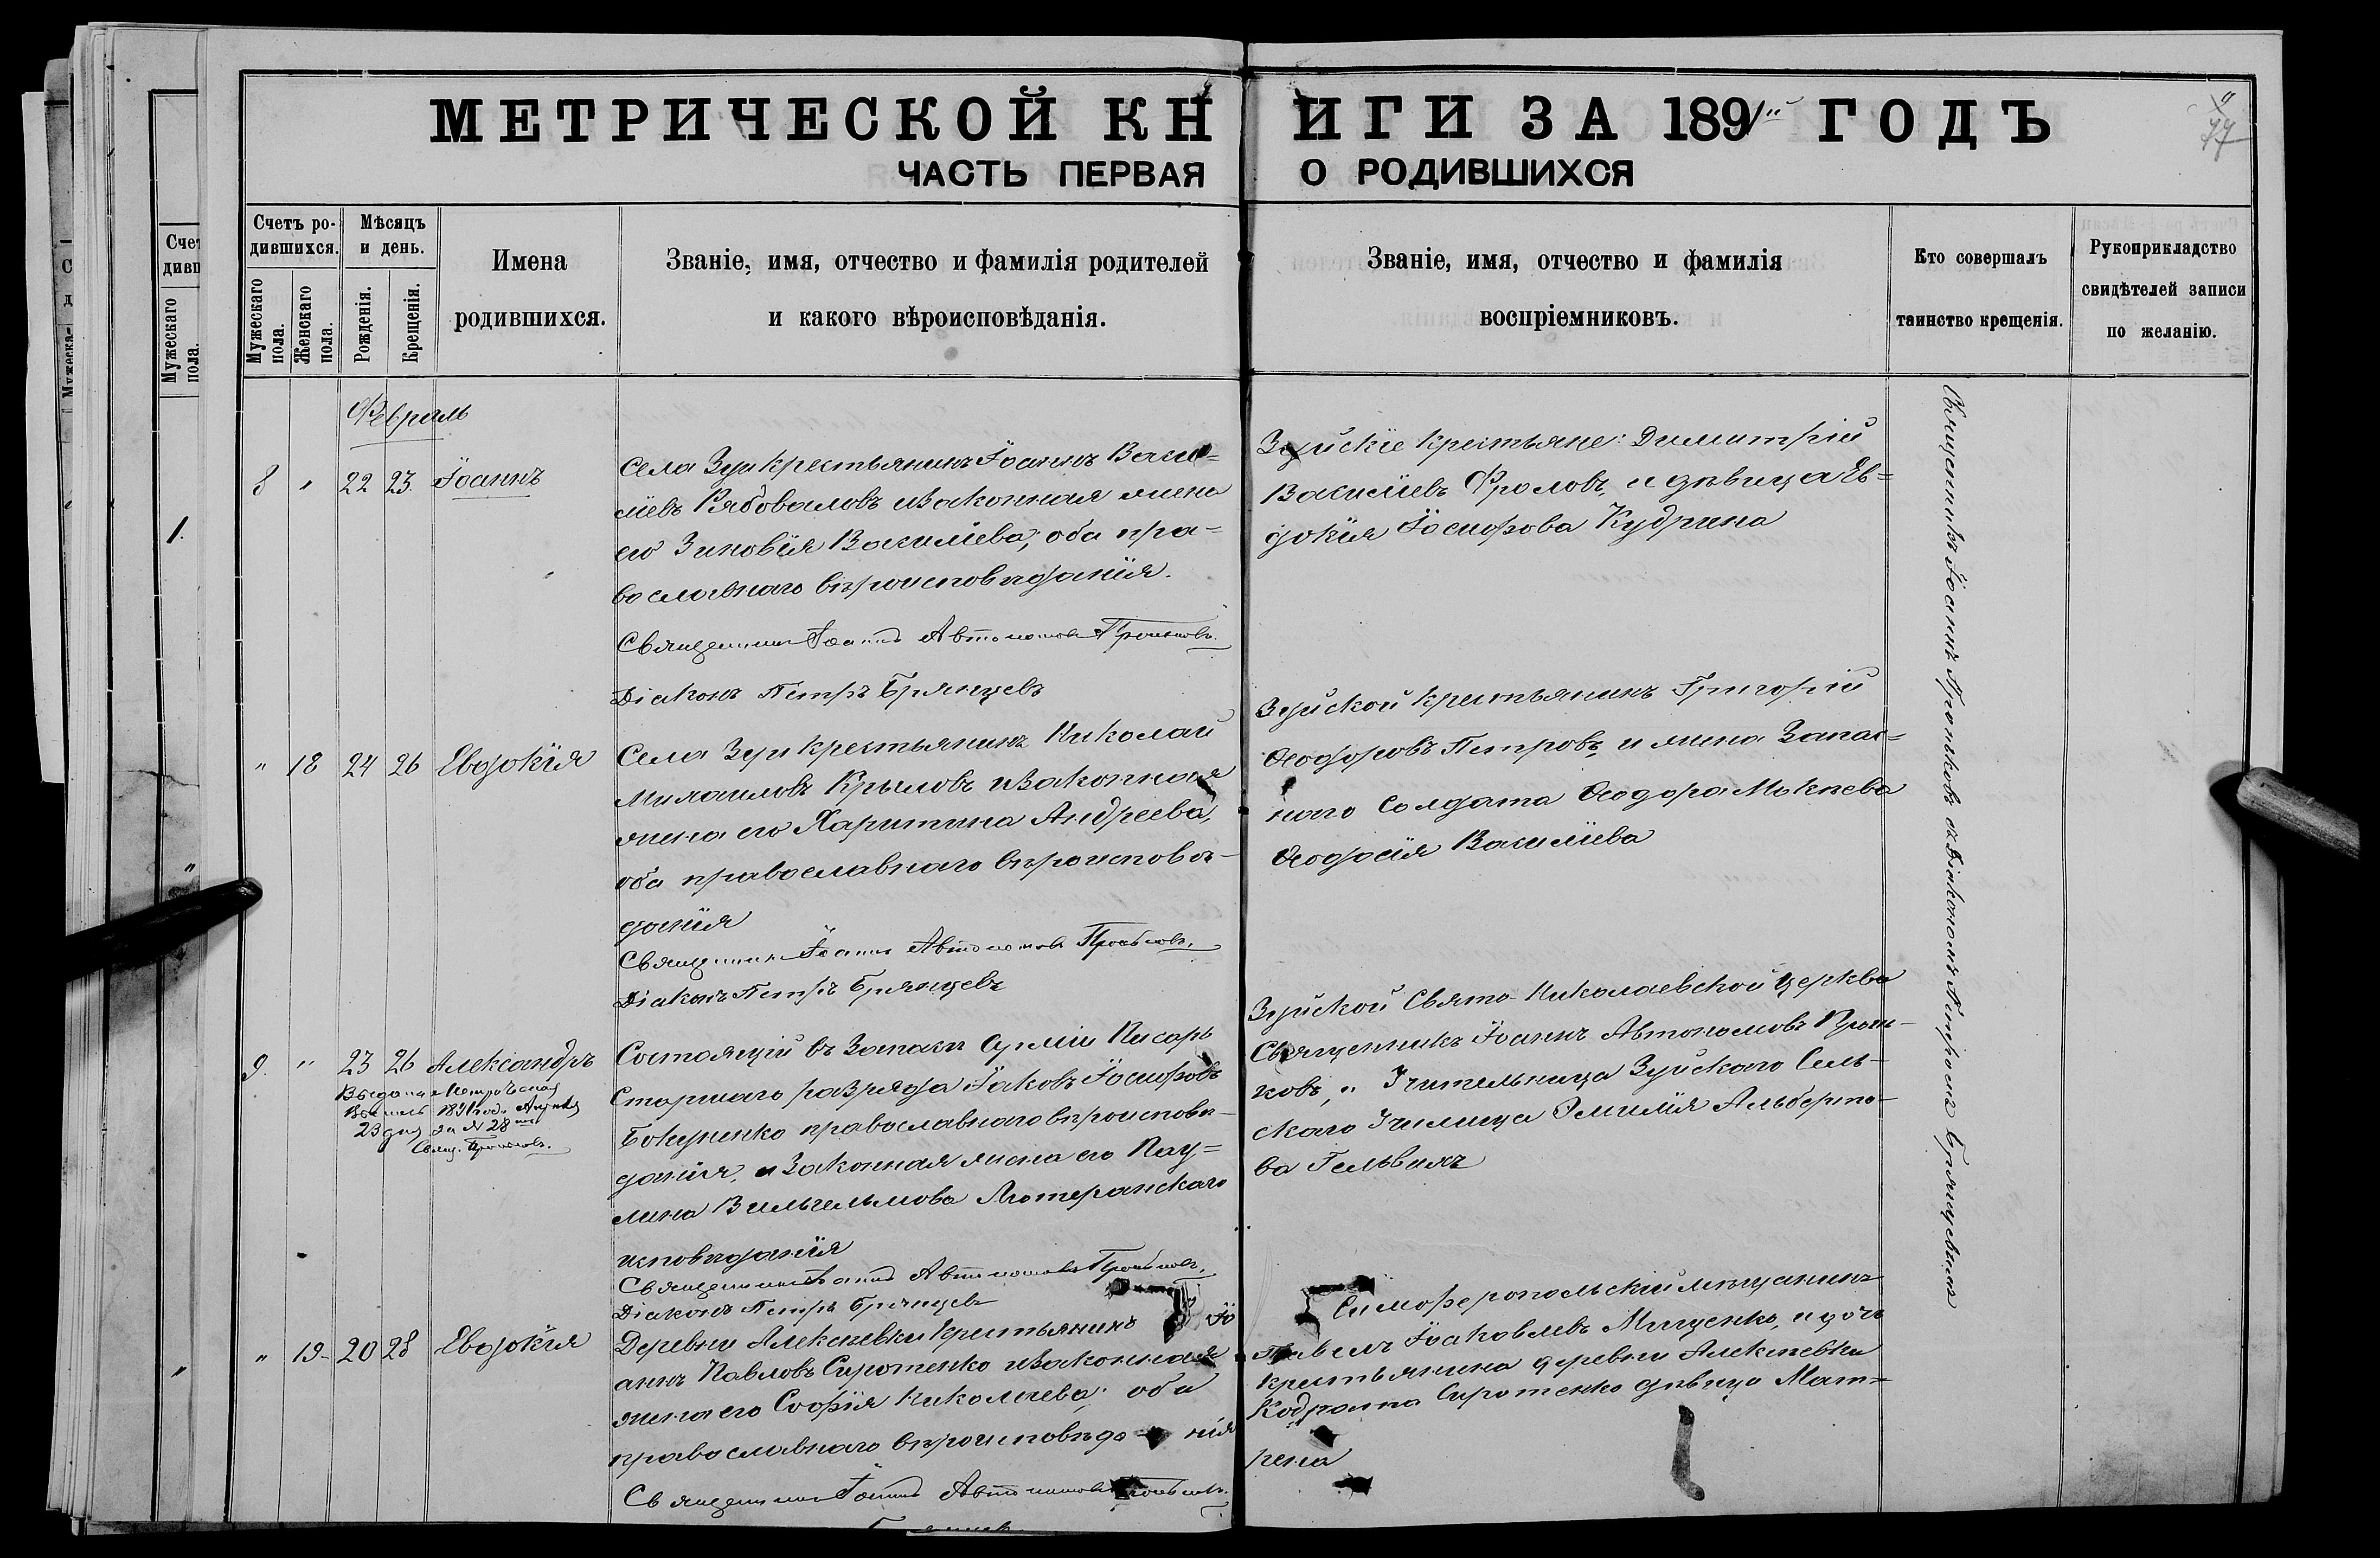 МЕТРИЧЕСКОЙ КНИГИ ЗА 1891й ГОДЪ
ЧАСТЬ ПЕРВАЯ О РОДИВШИХСЯ
Счетъ ро-
дившихся.
Мужескаго
пола.
Женскаго
пола.
Мѣсяцъ
и день.
Рожденія.
Крещенія.
Имена
родившихся.
Званіе, имя, отчество и фамилія родителей
и какого вѣроисповѣданія.
Званіе, имя, отчество и фамилія
воспріемниковъ.
Кто совершалъ
таинство крещенія.
Рукоприкладство
свидѣтелей записи
по желанію.
Февраль
8 " 22 23 Іоаннъ
Села Зуи крестьянинъ Іоаннъ Васи=
ліевъ Рябоваловъ и законная жена
его Зиновія Васильева; оба пра=
вославнаго вѣроисповѣданія.
Священникъ Іоаннъ Автономовъ Проньковъ.
Діаконъ Петръ Брянцевъ
Зуйскіе крестьяне: Димитрій
Василіевъ Фроловъ, и дѣвица Ев=
докія Іосифова Кудрина
" 18 24 26 Евдокія
Села Зуи крестьянинъ Николай
Михаиловъ Крыловъ и законная
жена его Харитина Андреева,
оба православнаго вѣроисповѣ-
данія
Священникъ Іоаннъ Автономовъ Проньковъ.
Діаконъ Петръ Брянцевъ
Зуйской крестьянинъ Григорій
Ѳеодоровъ Петровъ, и жена Запас=
наго Солдата Ѳеодора Мокѣева
Ѳеодосія Василіева
9. " 23 26 Александръ
Выдана Метрическая
1891 года
23 дня за № 28
Свящ. Проньковъ.
Состоящій въ Запасѣ Арміи Писарь
Старшаго разряда Іаковъ Іосифовъ
православнаго вѣроисповѣ-
данія, и Законная жена его Пау=
лина Вильгельмова Лютеранскаго
исповѣданія
Священникъ Іоаннъ Автономовъ Проньковъ.
Діаконъ Петръ Брянцевъ
Зуйской Свято-Николаевской церкви
Священникъ Іоаннъ Автономовъ Пронь-
ковъ, и Учительница Зуйскаго Сель-
скаго Училища Эмилія Альберто-
ва
" 19 20 28 Евдокія
Деревни Алексѣевки Крестьянинъ Іо
аннъ Павловъ Сиротенко и законная
жена его Софія Николаева; оба
православнаго вѣроисповѣданія
Священникъ Іоаннъ Автономовъ Проньковъ.
Симферопольскій мѣщанинъ
Павелъ Іаковлевъ Мищенко, и дочь
крестьянина деревни Алексѣевки
Кодрата Сиротенко дѣвица Мат=
рена
Священникъ Іоаннъ Проньковъ съ Діакономъ Петромъ Брянцевымъ